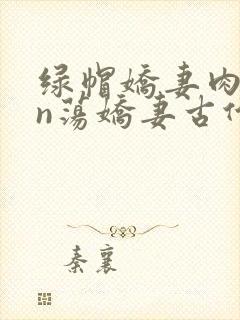 绿帽嬌妻肉
n蕩嬌妻古
秦襄